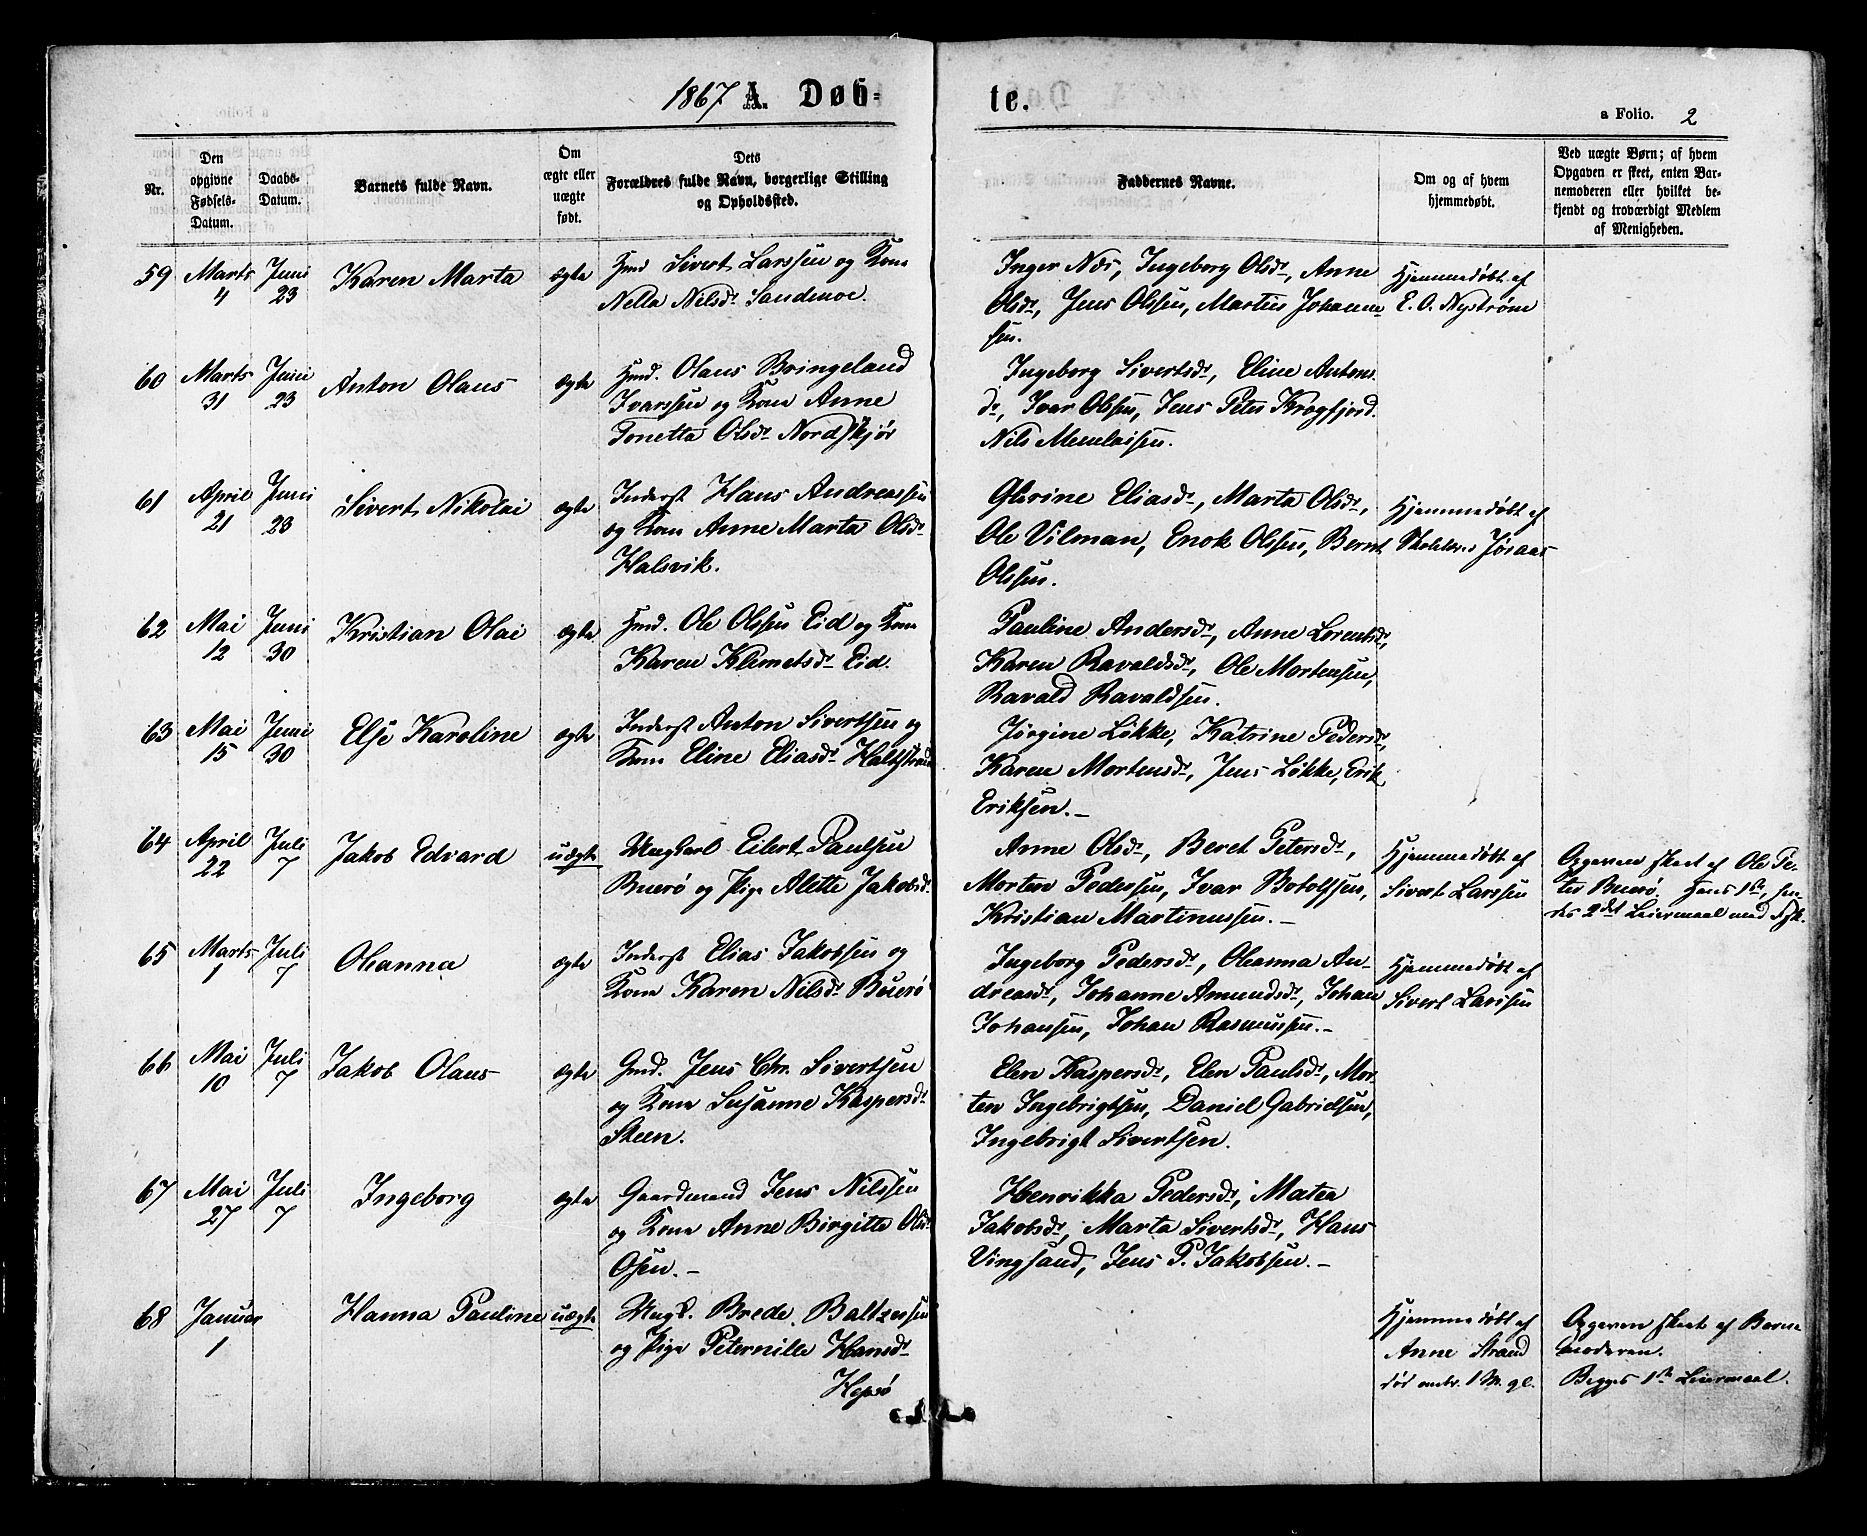 1867 A. Døb-
te.
a Folio. 2
Nr.
Den
opgivne
Fødsels-
Datum.
Daabs-
Datum.
Barnets fulde Navn.
Om
ægte eller
uægte
født.
Dets
Forældres fulde Navn, borgerlige Stilling
og Opholdssted.
Faddernes Navne.
Om og af hvem
hjemmedøbt.
Ved uægte Børn; af hvem
Opgaven er skeet, enten Bar-
nemoderen eller hvilket be-
kjendt og troværdigt Medlem
af Menigheden.
59 Marts 4 Juni 23 Karen Marta ægte
Gmd Sivert Larssen og Kone
Nella Nilsdr Sandmoe.
Inger Nös, Ingeborg Olsdr, Anne
Olsdr, Jens Olssen, Martin Johann-
sen.
Hjemmedøbt af
E. O. Nystrøm
60 Marts 31 Juni 23 Anton Olaus ægte
Gmd. Olaus Bringeland
Ivarssen og Kone Anne
Tonetta Olsdr Nordskjør
Ingeborg Sivertsdr, Eline Antons
dr, Ivar Olssen, Jens Peter Krogfjord.
Nils Menlaisen.
61 April 21 Juni 23 Sivert Nikolai ægte
Inderst Hans Andreassen
og Kone Anne Marta Olsdr
Halsvik.
Glerine Eliasdr, Marta Olsdr,
Ole Vilman, Enok Olssen, Bernt
Olssen.
Hjemmedøbt af
Jøraas
62 Mai 12 Juni 30 Kristian Olai ægte
Gmd. Ole Olssen Eid og Kone
Karen Klemetsdr Eid.
Pauline Andersdr, Anne Lorentsdr,
Karen Ravaldsdr, Ole Mortensen,
Ravald Ravaldsen.
63 Mai 15 Juni 30 Else Karoline ægte
Inderst Anton Sivertsen og
Kone Eline Eliasdr
Jørgine Løkke, Katrine Pedersdr,
Karen Mortensdr, Jens Løkke, Erik
Eriksen.-
64 April 22 Juli 7 Jakob Edvard uægte
Ungkarl Eilert Paulsen
Buerø og Pige Alette Jakobsdr
Anne Olsdr, Beret Petersdr,
Morten Pedersen, Ivar Botolfsen,
Kristian Martinussen.-
Hjemmedøbt af
Sivert Larssen
Opgaven skeet af Ole Pe-
ter Buerø. Hans 1ste, hen-
des 2det Leiermaal med
65 Marts 1 Juli 7 Oleanna ægte
Inderst Elias Jakobsen og
Kone Karen Nilsdr Buerø
Ingeborg Pedersdr, Oleanna An-
dreasdr, Johanne Amundsdr, Johan
Johansen, Johan Rasmussen.-
Hjemmedøbt af
Sivert Larssen
66 Mai 10 Juli 7 Jakob Olaus ægte
Gmd. Jens Chr. Sivertsen
og Kone Susanne Kaspersdr
Steen.
Elen Kaspersdr, Elen Paulsdr, Mor-
ten Ingebrigtsen, Daniel Gabrielsen,
Ingebrigt Sivertsen.
67 Mai 27 Juli 7 Ingeborg ægte
Gaardmand Jens Nilssen
og Kone Anne Birgitte Olsdr
Osen.-
Henrikka Pedersdr, Matea
Jakobsdr, Marta Sivertsdr, Hans
Vingsand, Jens P. Jakobsen.-
68 Januar 1 Hanna Pauline uægte
Ungk. Brede Baltzersen
og Pige Peternille Hansdr
Hepsø
Hjemmedøbt af
Anne Strand
død omtr. 1 M. gl.
Opgaven skeet af Barne
moderen.
Begges 1ste Leiermaal.